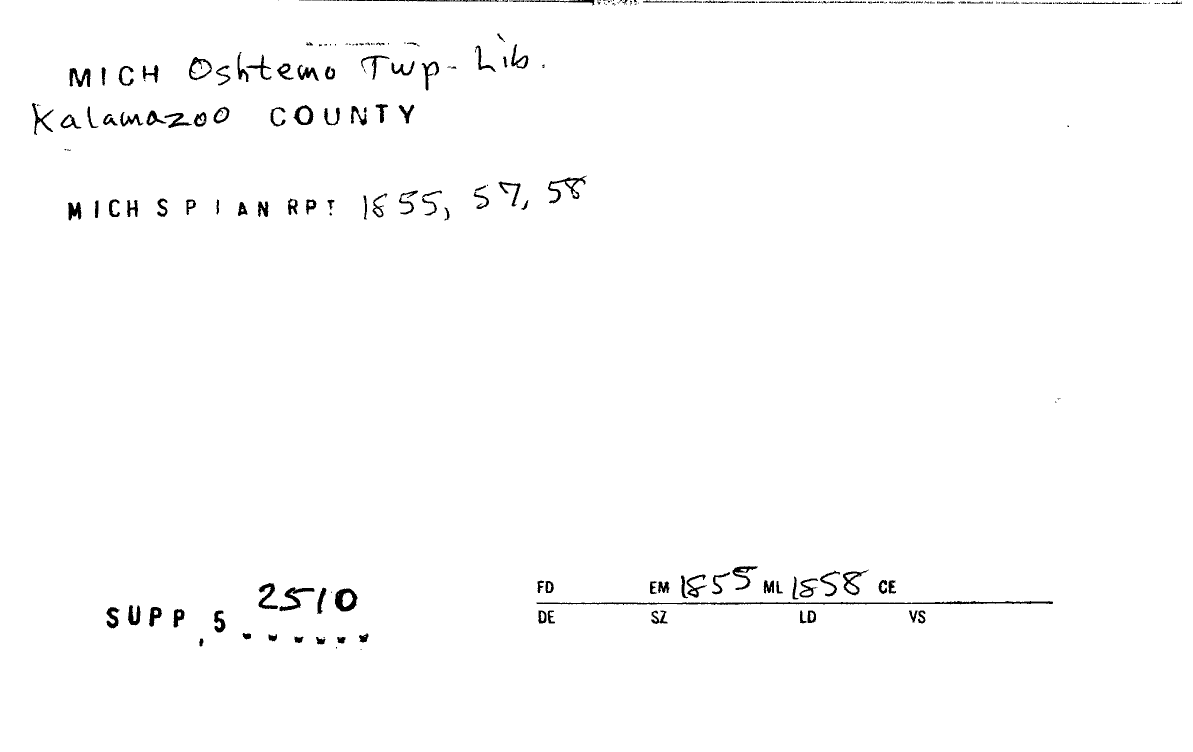 MICH Oshtemo Twp- Lib.
Kalamazoo COUNTY
MICH S P I AN RPT 1855, 57, 58
SUPP, 5 2510
FD EM 1855 ML 1858 CE
DE SZ LD VS